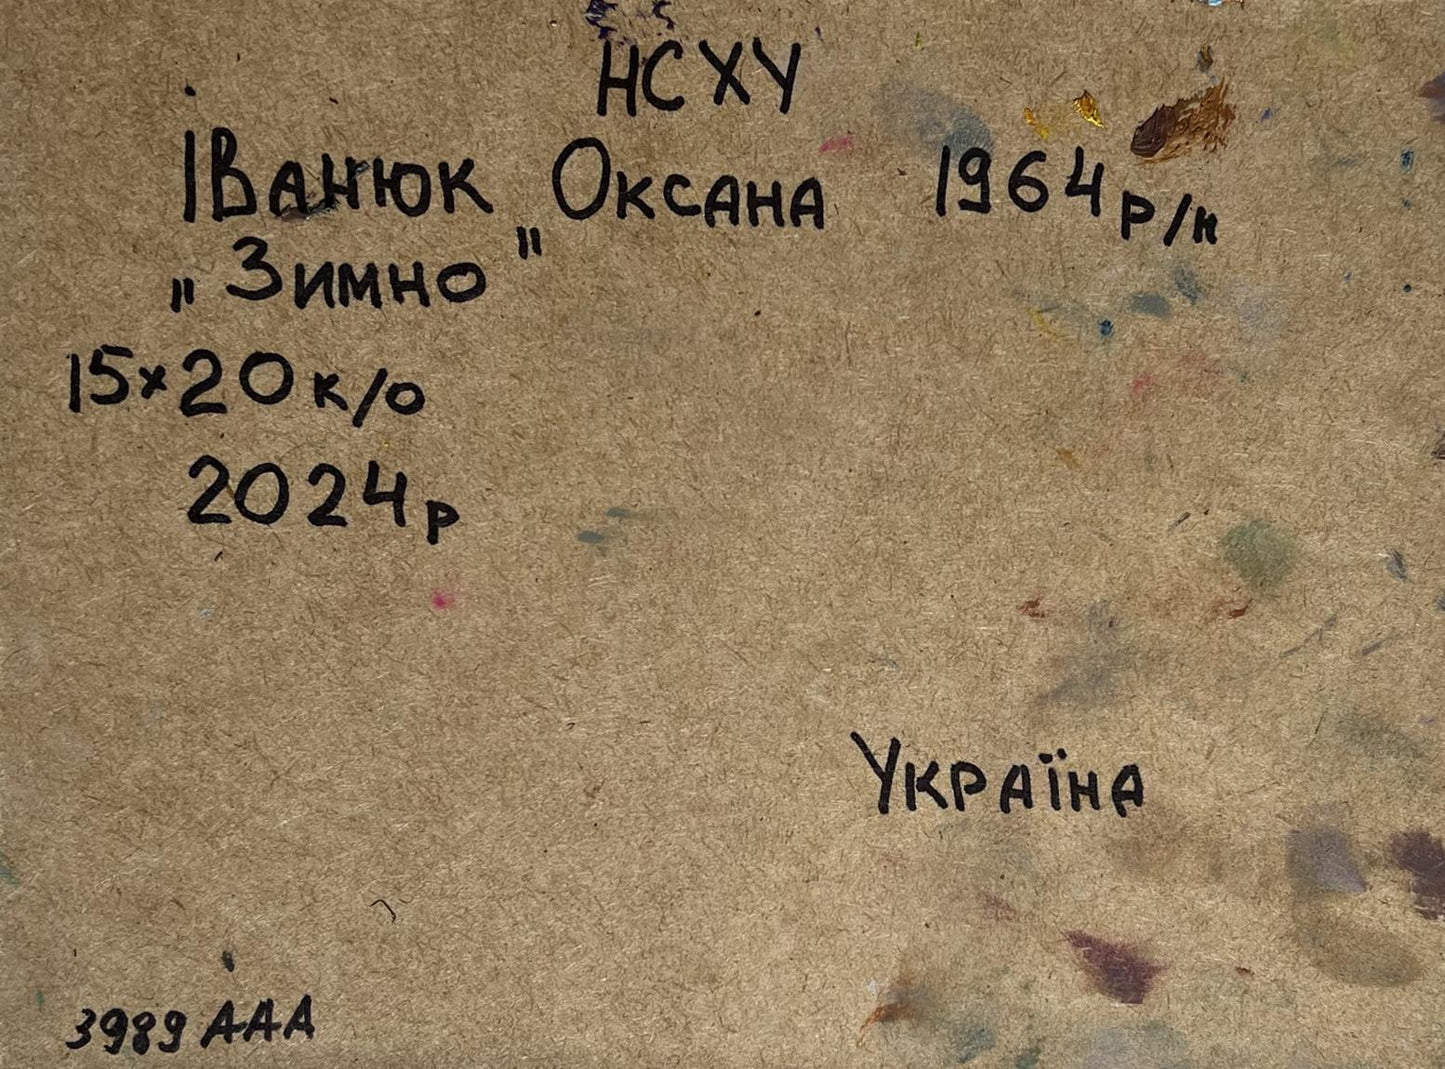 НСХУ
Іванюк Оксана 1964 р/н
„Зимно"
15×20 к/о
2024 р
Україна
3989 ААА